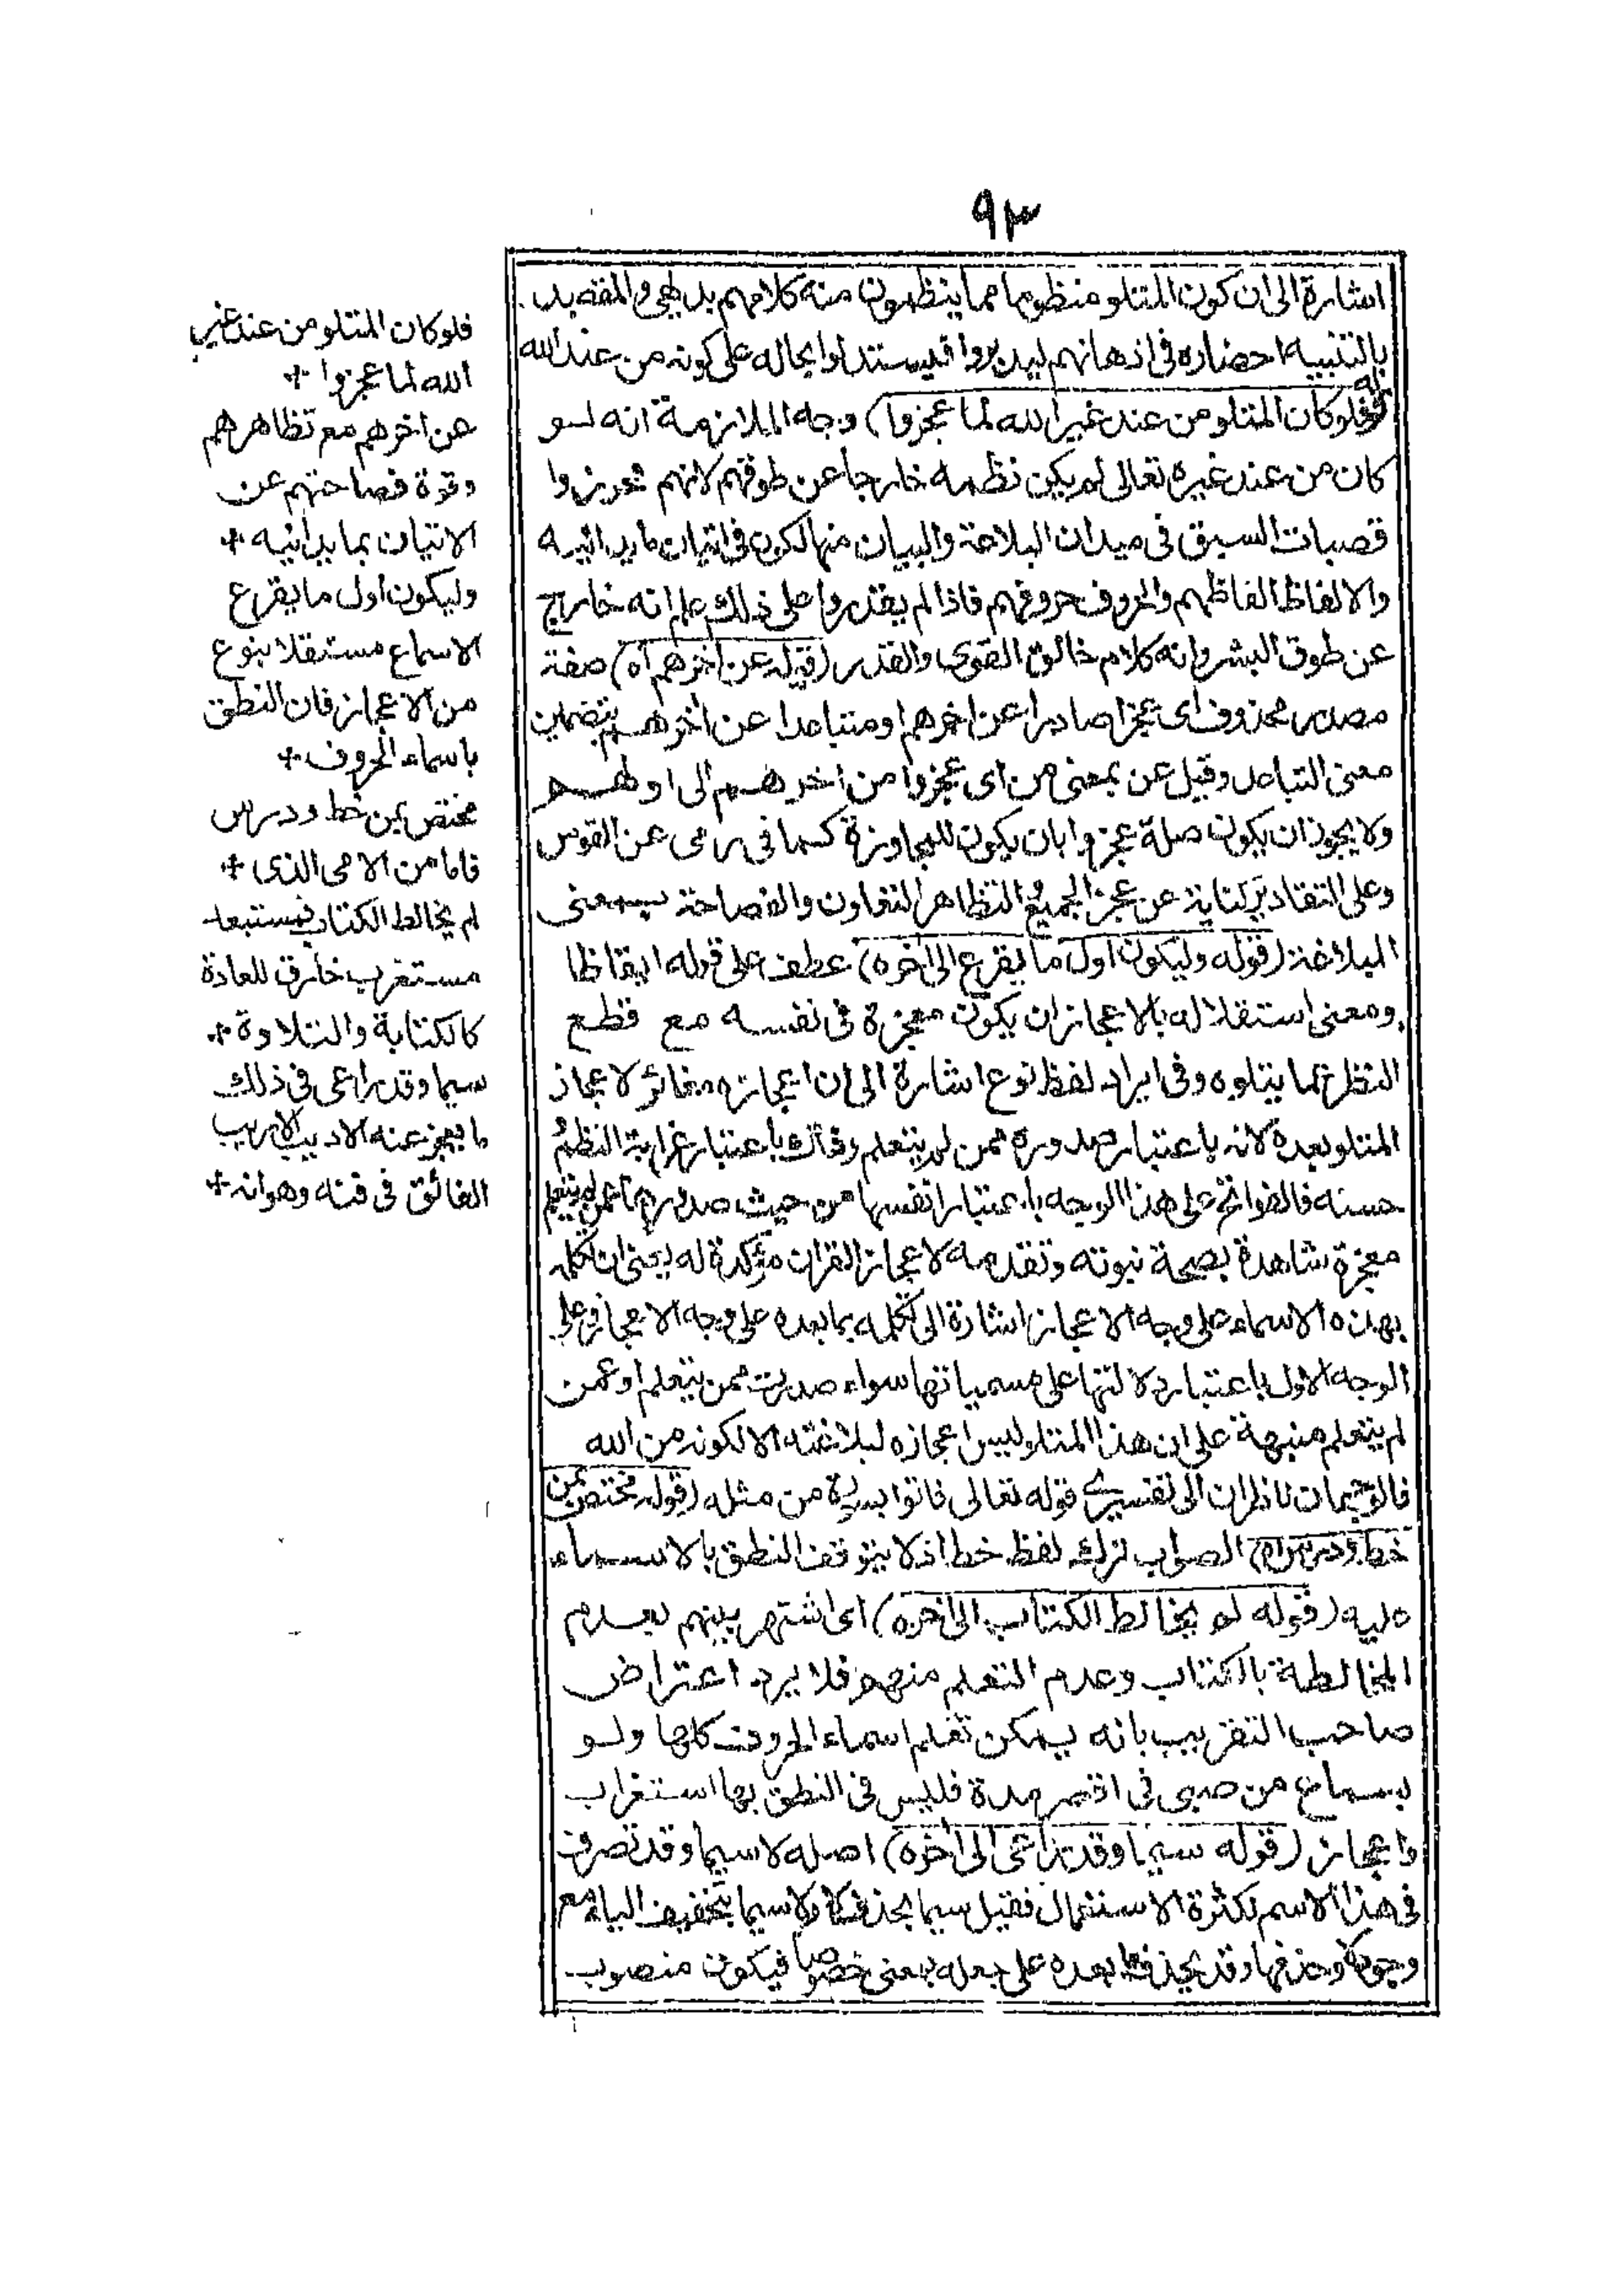 ٩٣
اشارة الى ان كون المتلو منظوما مما ينظمون منه كلامهم بديهى والمقصد
بالتنبيه احضاره فى اذهانهم ليدبروا فيستدلوا بحاله على كونه من عند الله
قوله فلو كان المتلو من عند غير الله لما عجزوا) وجه الملازمة انه لو
كان من عند غيره تعالى لم يكن نظمه خارجا عن طوقهم لانهم محرزوا
قصبات السبق فى ميدان البلاغة والبيان منهالكون فى اتيان ما يدانيه
والالفاظ الفاظهم والحروف حروفهم فاذا لم يقدروا على ذلك علم انه خارج
عن طوق البشر وانه كلام خالق القوى والقدر (قوله عن اخرهم اه) صفة
مصدر محذوف اى عجزا صادرا عن اخرهم او متباعدا عن اخرهم بتضمين
معنى التباعد وقيل عن بمعنى من اى عجزوا من اخرهم الى اولهم
ولا يجوز ان يكون صلة عجزوا بان يكون للمجاوزة كما فى رمى عن القوس
وعلى التقادير كناية عن عجز الجميع التظاهر التعاون والفصاحة بمعنى
البلاغة (قوله وليكون اول ما يقرع الى اخره) عطف على قوله ايقاظا
ومعنى استقلاله بالاعجاز ان يكون معجزة فى نفسه مع قطع
النظر عما يتلوه وفى ايراد لفظ نوع اشارة الى ان اعجازه مغائر لاعجاز
المتلو بعده لانه باعتبار صدوره ممن لم يتعلم وذاك باعتبار غرابة النظم و
حسنه فالفواتح على هذا الوجه باعتبار انفسها من حيث صدورها عمن لم يتعلم
معجزة شاهدة بصحة نبوته وتقدمه لاعجاز القران مؤكدة له يعنى ان تكلمه
بهذه الاسماء على وجه الاعجاز اشارة الى تكلمه بما بعده على وجه الاعجاز وعلى
الوجه الاول باعتبار دلالتها على مسمياتها سواء صدرت ممن يتعلم او عمن
لم يتعلم منبهة على ان هذا المتلو ليس اعجازه لبلاغته الا لكونه من الله
فالوجهان ناظران الى تفسيرى قوله تعالى فاتوا بسورة من مثله (قوله مختص بمن
خط ودرس اه) الصواب ترك لفظ خط اذ لا يتوقف النطق بالاسماء
عليه (قوله لم يخالط الكتاب الى اخره) اى اشتهر بينهم بعدم
المخالطة بالكتاب وعدم التعلم منهم فلا يرد اعتراض
صاحب التقريب بانه يمكن تعلم اسماء الحروف كلها ولو
بسماع من صبى فى اقصر مدة فليس فى النطق بها استغراب
واعجاز (قوله سيما وقد راعى الى اخره) اصله لاسيما وقد تصرف
فى هذا الاسم لكثرة الاستعمال فقيل سيما بحذف لا ولاسيما بتخفيف الياء مع
وجود لا وحذفها وقد يحذف ما بعده على جعله بمعنى خصوصا فيكون منصوب
فلو كان المتلو من عند غير
الله لما عجزوا +
عن اخرهم مع تظاهرهم
وقوة فصاحتهم عن
الاتيان بما يدانيه +
وليكون اول ما يقرع
الاسماع مستقلا بنوع
من الاعجاز فان النطق
باسماء الحروف +
مختص بمن خط ودرس
فاما من الامى الذى +
لم يخالط الكتاب فيستبعد
مستغرب خارق للعادة
كالكتابة والتلاوة +
سيما وقد راعى فى ذلك
ما يعجز عنه الاديب الاريب
الفائق فى فنه وهو انه +